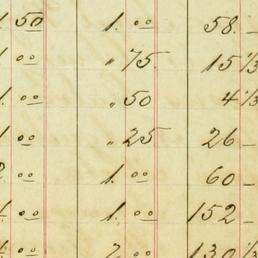 1. 50 1. 00 58. –
1 00 " 75. 15 1/3
1 00 " 50 4 1/3
1 00 " 25 26 –
2. 00 1. 00 60 –
1. 00 1. 00 152 –
1. 00 2. 00 130 1/3